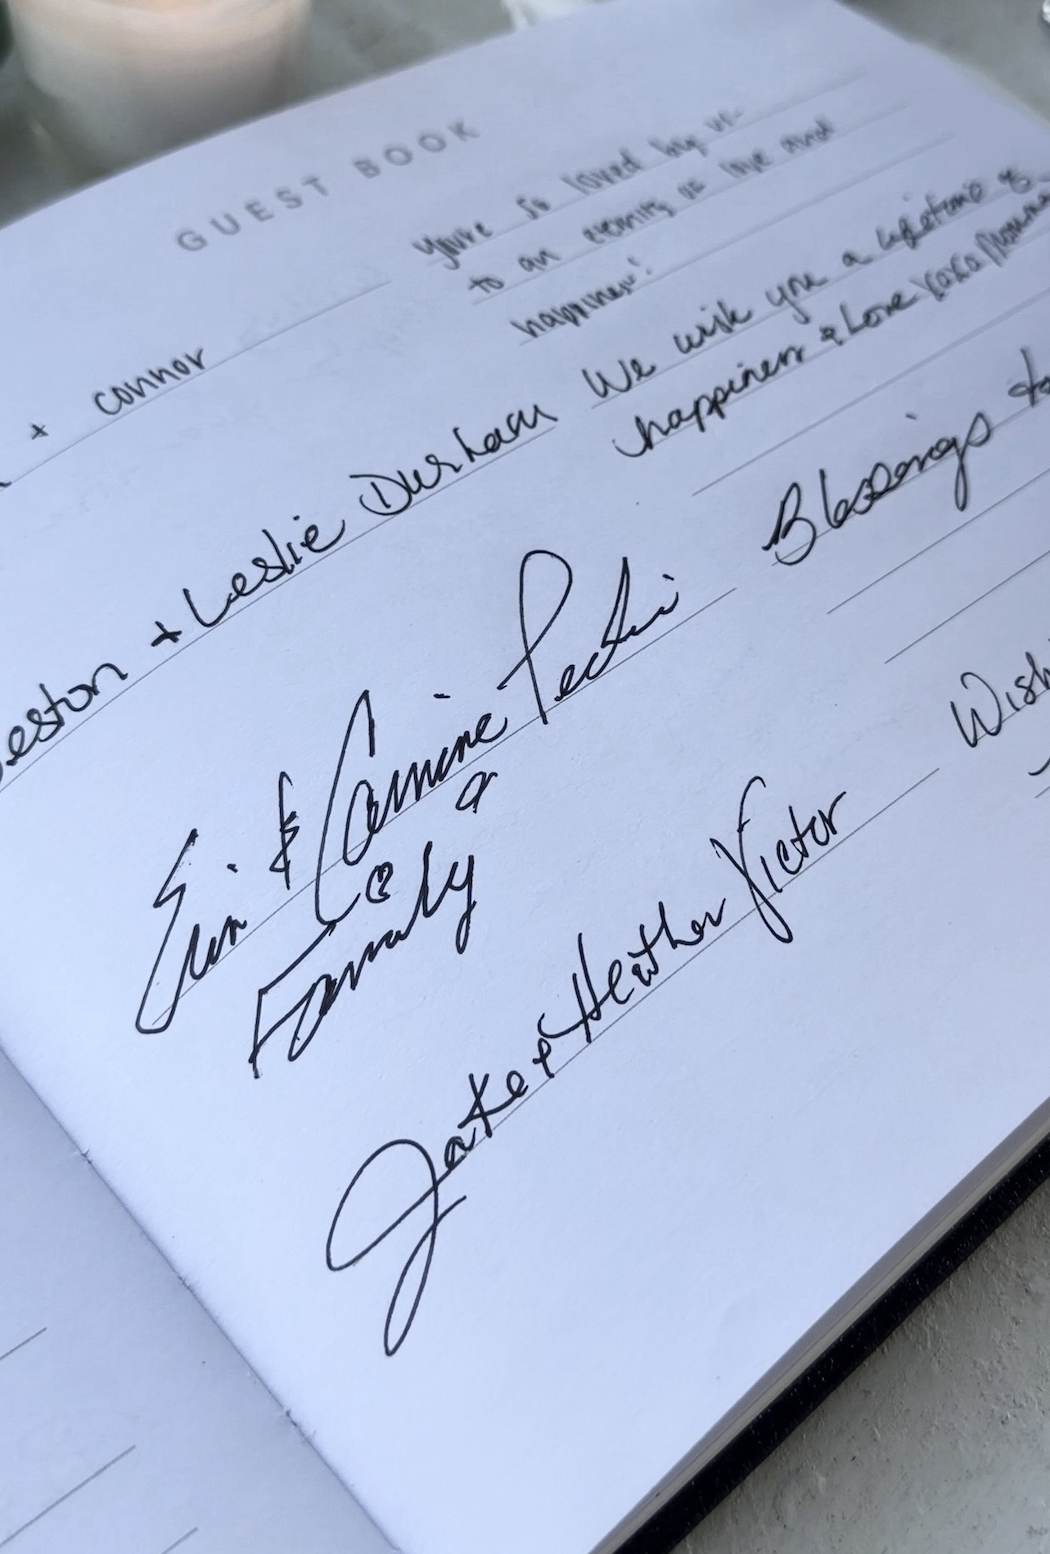 GUEST BOOK
+ connor
you're so loved by us -
to an eternity of love and
happiness!
eston + Leslie Durham
We wish you a lifetime of
happiness & Love XOXO
Erin & Carmine
&
Family
Blessings to
Jake & Heather Victor
Wish